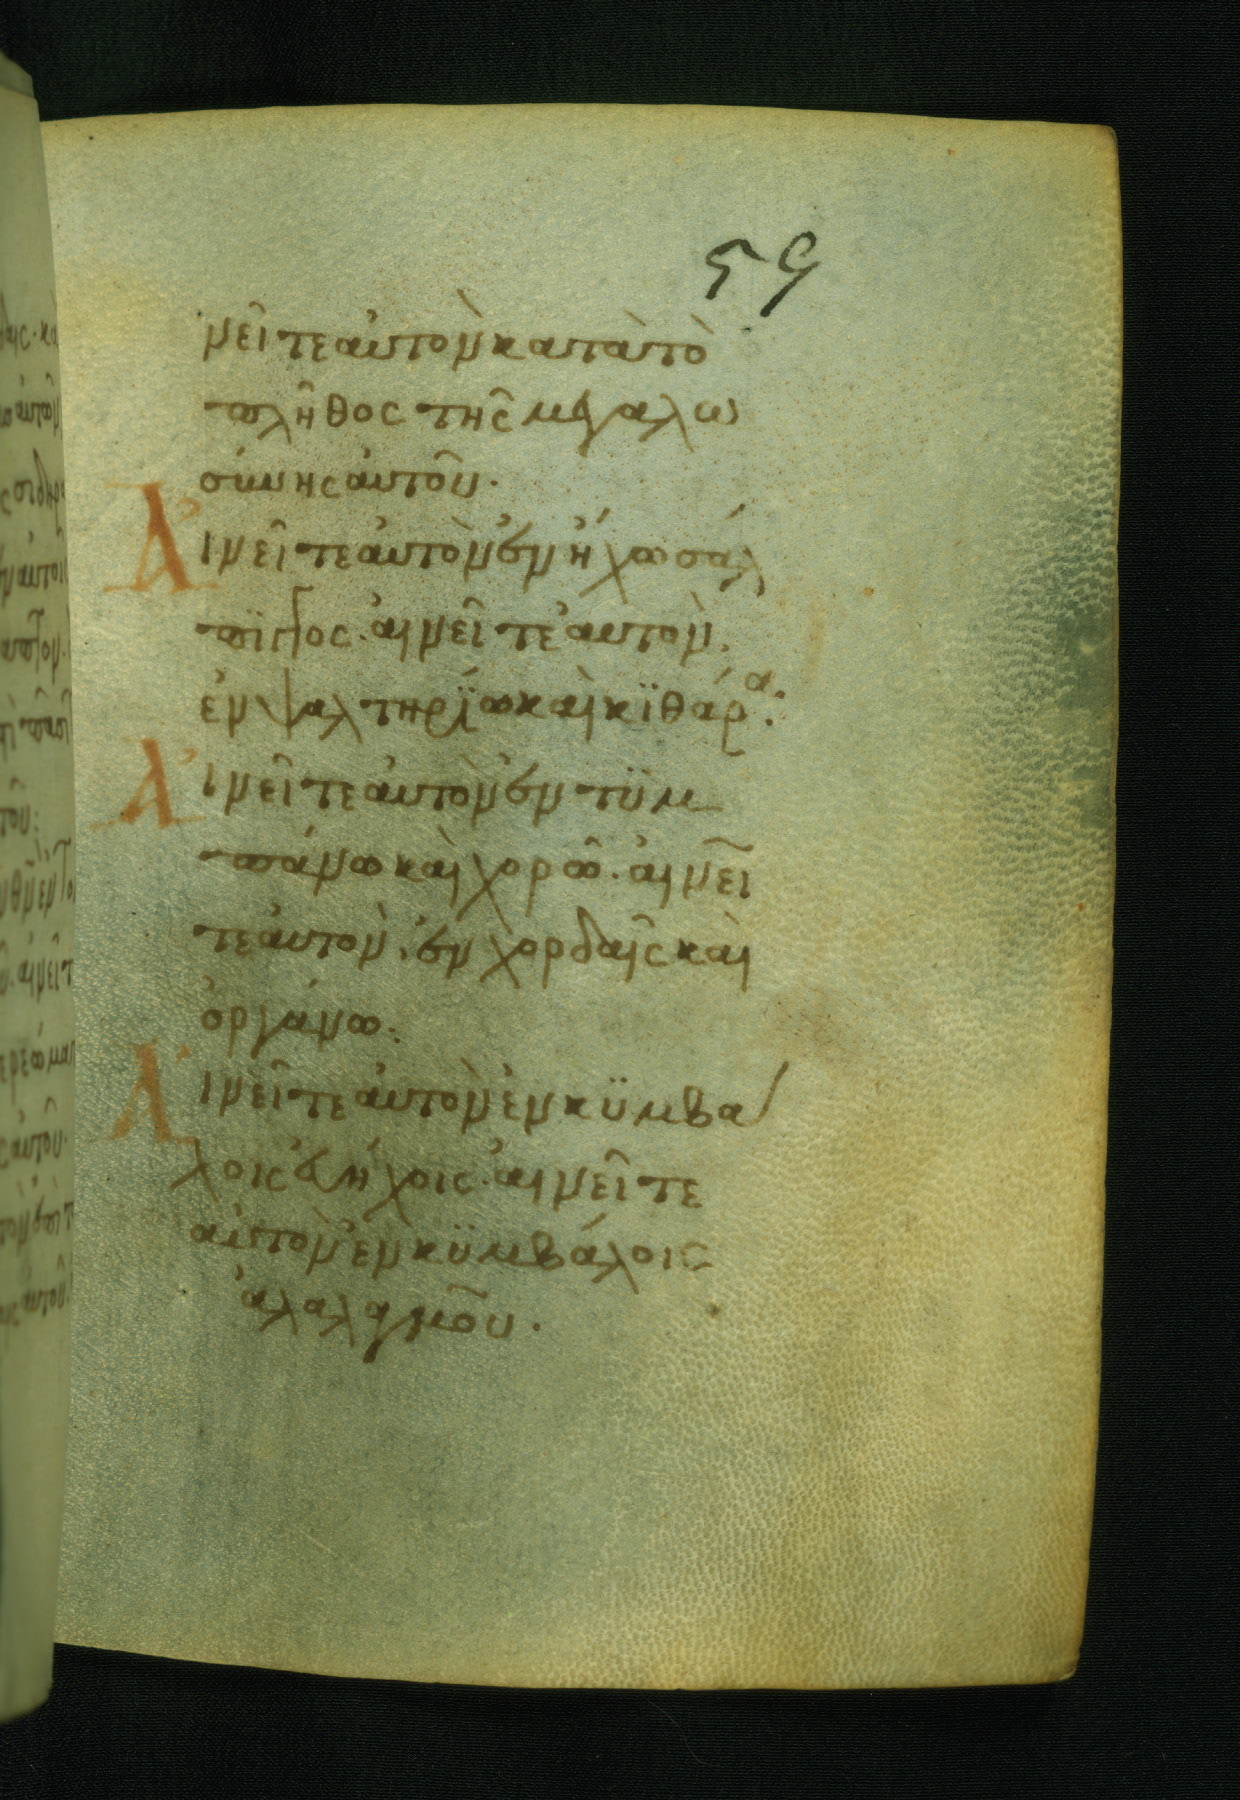 59
νεῖτε ἀυτὸν κατατὸ
πλῆθος τῆς μεγαλω
σύνης ἀυτοῦ·
Ἀινεῖτε ἀυτὸν ἐν ἤχω σάλ
πϊγγος· ἀινεῖτε ἀυτὸν,
ἐν ψαλτηρΐω καὶ κϊθάρα·
Ἀινεῖτε ἀυτὸν ἐν τϋμ
πάνω καὶ χορῶ· ἀινεῖ
τε ἀυτὸν, ἐν χορδαῖς καὶ
ὀργάνω:
Ἀινεῖτε ἀυτὸν ἐν κϋμβά
λοις ἐυήχοις· ἀινεῖτε
ἀυτὸν ἐν κϋμβάλοις
ἀλαλαγμοῦ·